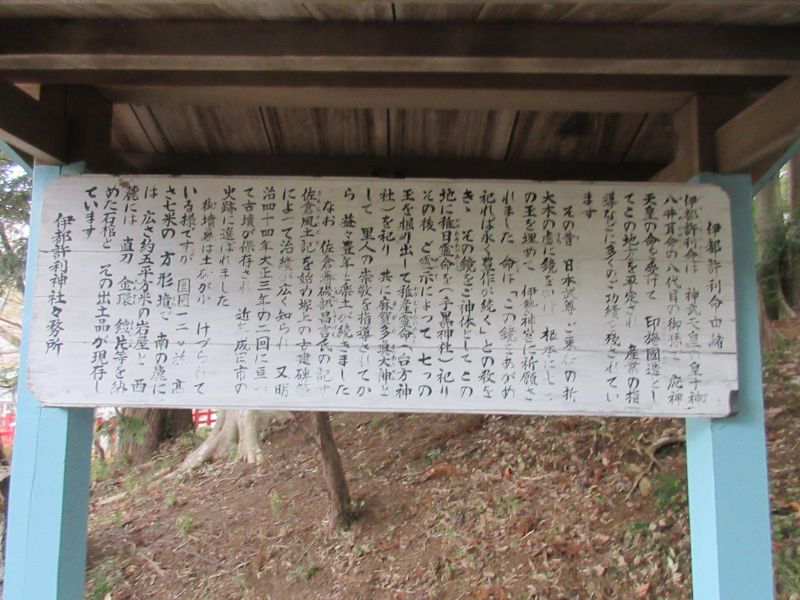 伊都許利命由緒
伊都許利命は 神武天皇の皇子神
八井耳命の八代目の御孫で 応神
天皇の命を受けて 印旛國造とし
てこの地方を平定され 産業の指
導などに多くのご功績を残されてい
ます
その昔 日本武尊ご東征の折
大木の 鏡を 根本に七つ
の玉を埋めて 伊勢神宮に祈願さ
れました 命は この鏡をあがめ
祀れば永く豊作が続く との教を
きゝ その鏡をご神体としてこの
地に稚日霊命を 手黒神社に祀り
その後 ご霊示によって 七つの
玉を掘り出して稚産霊命を台方神
社に を祀り 共に麻賀多真大神と
して 里人の崇敬を指導されてか
ら 益々豊年と楽土が続きました
なお 佐倉藩磯部昌言氏の記す
佐倉風土記を始め塚上の古建碑等
によって治績が広く知られ 又明
治四十四年大正三年の二回に亘っ
て古墳が保存され 近年成田市の
史跡に選ばれました
御墳墓は土砂が けづられて
いる様ですが 周囲一二 米 高
さ七米の 方形墳で 南の麓に
は 広さ約五平方米の岩屋と 西
麓には 直刀 金環 鎧片等を納
めた石棺と その出土品が現存し
ています
伊都許利神社々務所